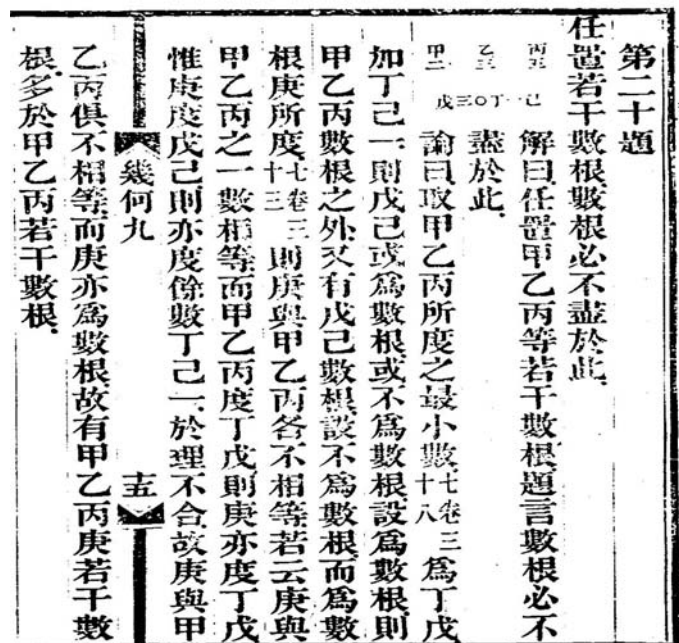 第二十題
任置若干數根數根必不盡於此
解曰任置甲乙丙等若干數根題言數根必不
盡於此
丙五
乙三
甲二
己一丁〇三戊
論曰取甲乙丙所度之最小數七卷三十八爲丁戊
加丁己一則戊己或爲數根或不爲數根設爲數根則
甲乙丙數根之外又有戊己數根設不爲數根而爲數
根庚所度七卷三十三則庚與甲乙丙各不相等若云庚與
甲乙丙之一數相等而甲乙丙度丁戊則庚亦度丁戊
惟庚度戊己則亦度餘數丁己一於理不合故庚與甲
幾何九
十五
乙丙俱不相等而庚亦爲數根故有甲乙丙庚若干數
根多於甲乙丙若干數根